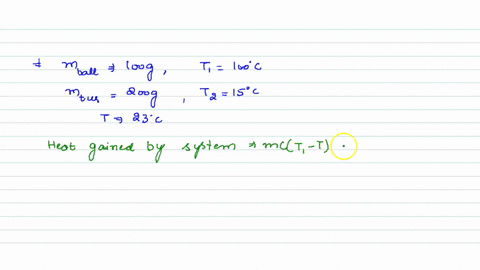 ⇒ m_ball ⇒ 100g , T₁ = 100°C
m_tur = 200g , T₂ = 15°C
T → 23°C
Heat gained by system ⇒ mC(T₁ - T) .